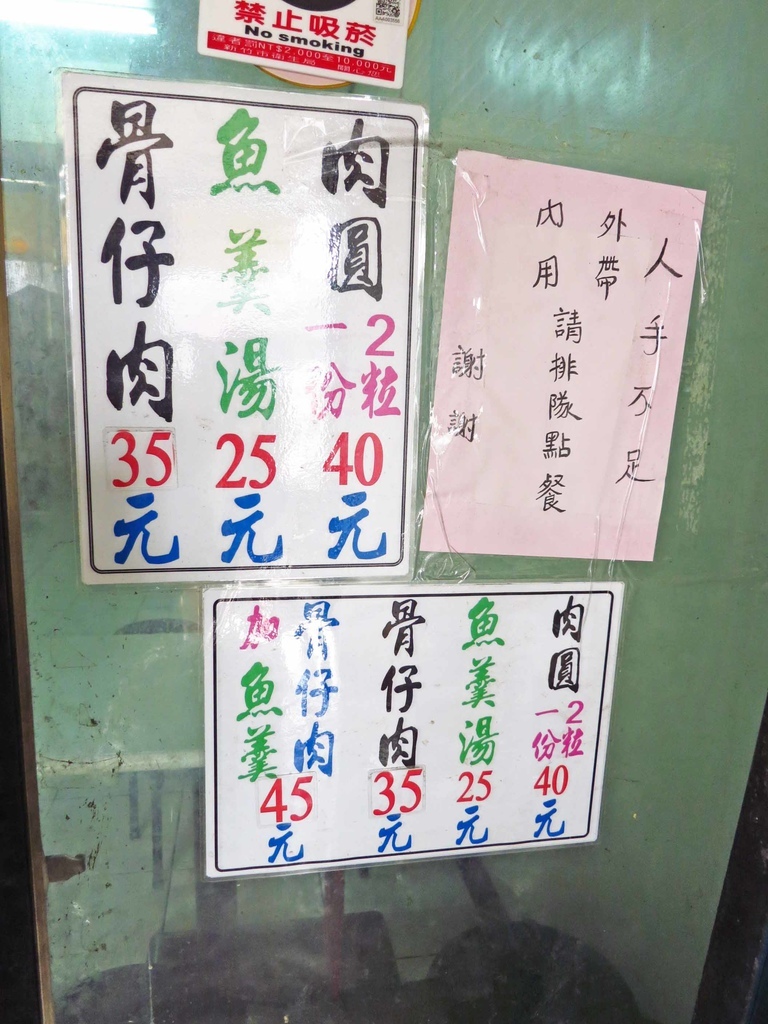 禁止吸菸
No smoking
違者罰NT$2,000至10,000元
新竹市衛生局 關心您
肉圓
2粒
一份
40元
魚羹湯
25元
骨仔肉
35元
人手不足
外帶
內用
請排隊點餐
謝謝
肉圓
2粒
一份
40元
魚羹湯
25元
骨仔肉
35元
骨仔肉
加魚羹
45元